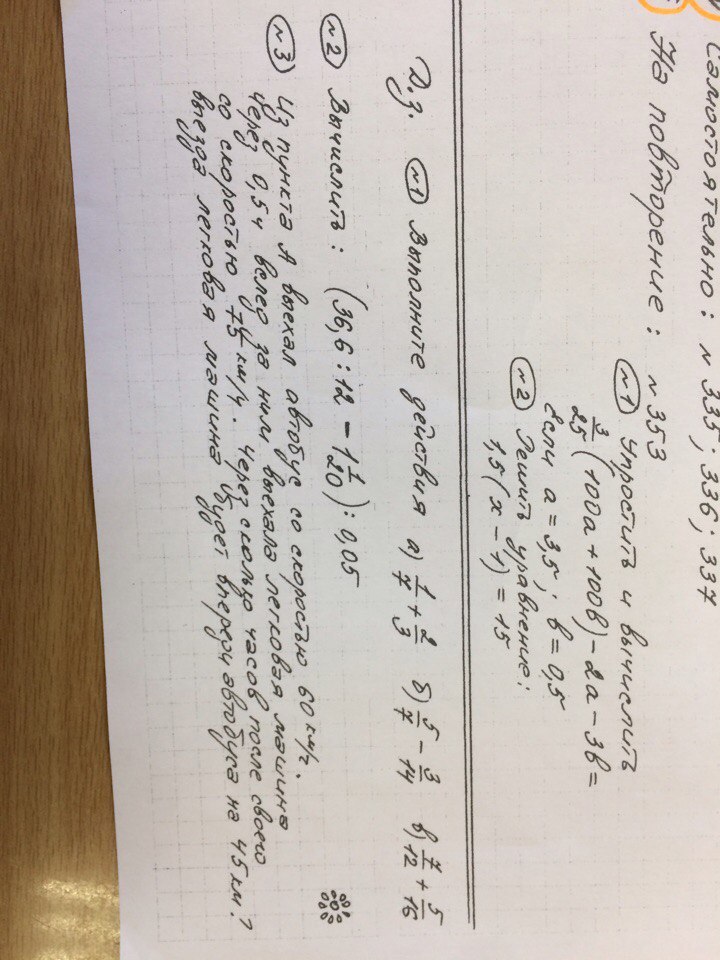 Самостоятельно: №335; 336; 337
На повторение: №353
№1 Упростить и вычислить
3/25 (100a + 100b) - 2a - 3b =
Если a = 3,5; b = 0,5
№2 Решить уравнение:
1,5(x - 4) = 15
Д.з. №1 Выполните действия а) 1/7 + 2/3 б) 5/7 - 3/14 в) 7/12 + 5/16
№2 Вычислить: (36,6 : 12 - 1 1/20) : 0,05
№3 Из пункта А выехал автобус со скоростью 60 км/ч.
Через 0,5 ч вслед за ним выехала легковая машина
со скоростью 75 км/ч. Через сколько часов после своего
выезда легковая машина будет впереди автобуса на 45 км?